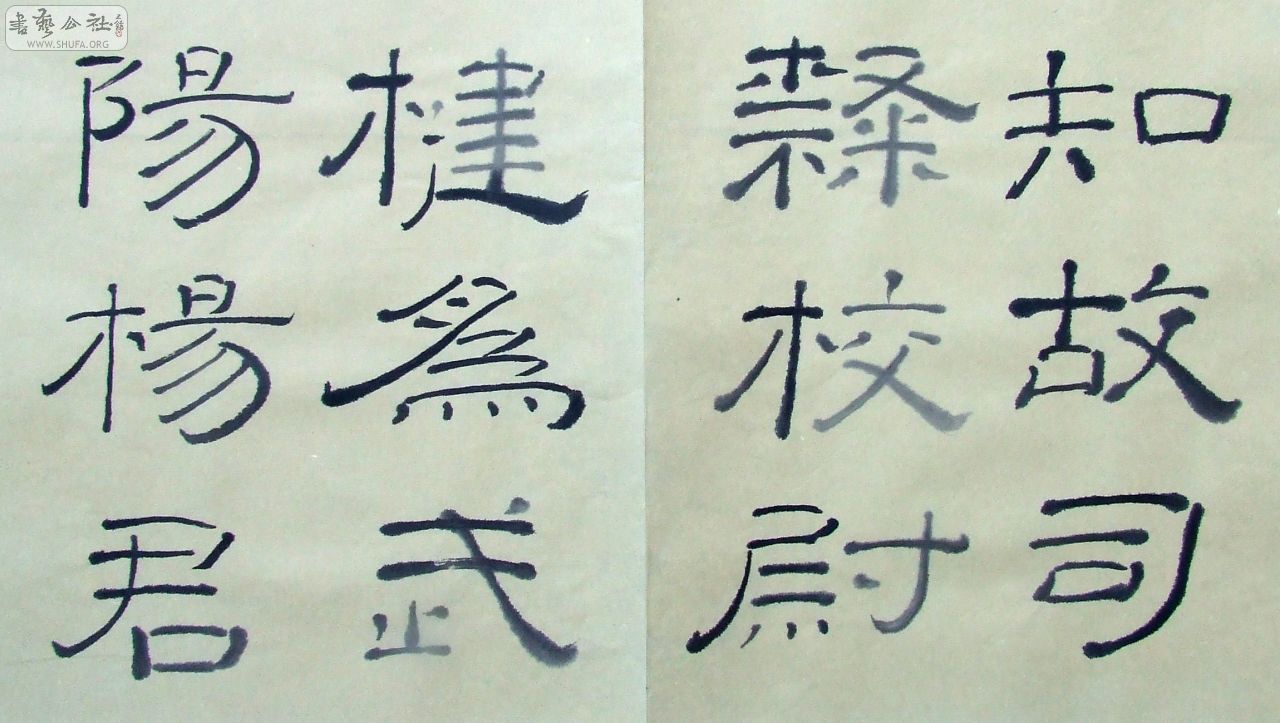 知故司
隸校尉
楗為武
陽楊君
書藝公社
WWW.SHUFA.ORG